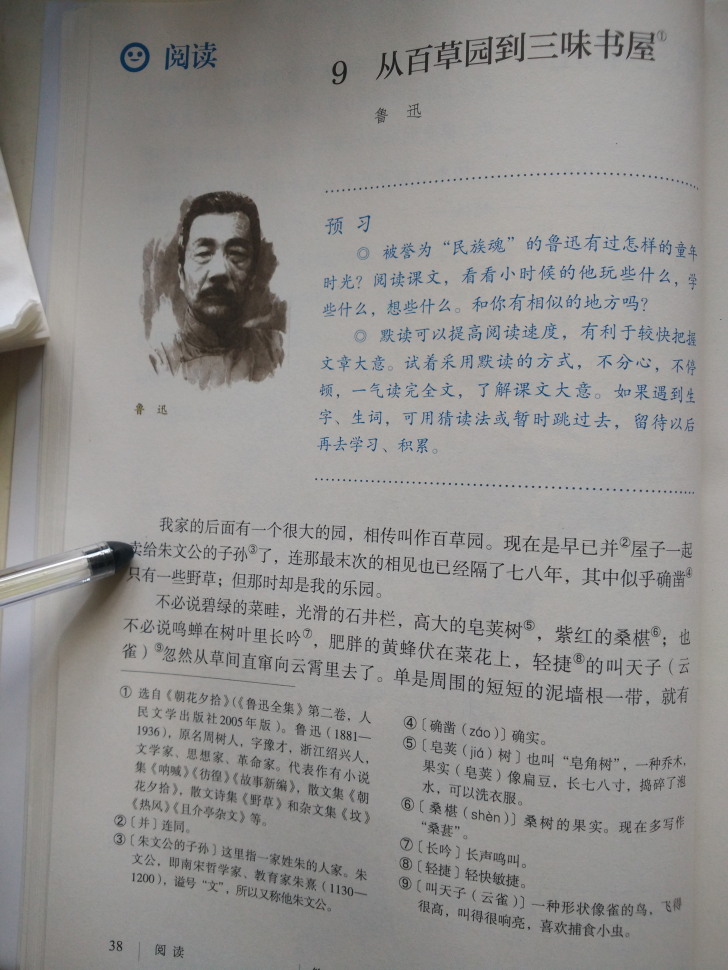 阅读
9 从百草园到三味书屋①
鲁 迅
预 习
◎ 被誉为“民族魂”的鲁迅有过怎样的童年
时光？阅读课文，看看小时候的他玩些什么，学
些什么，想些什么。和你有相似的地方吗？
◎ 默读可以提高阅读速度，有利于较快把握
文章大意。试着采用默读的方式，不分心，不停
顿，一气读完全文，了解课文大意。如果遇到生
字、生词，可用猜读法或暂时跳过去，留待以后
再去学习、积累。
鲁 迅
我家的后面有一个很大的园，相传叫作百草园。现在是早已并②屋子一起
卖给朱文公的子孙③了，连那最末次的相见也已经隔了七八年，其中似乎确凿④
只有一些野草；但那时却是我的乐园。
不必说碧绿的菜畦，光滑的石井栏，高大的皂荚树⑤，紫红的桑椹⑥；也
不必说鸣蝉在树叶里长吟⑦，肥胖的黄蜂伏在菜花上，轻捷⑧的叫天子（云
雀）⑨忽然从草间直窜向云霄里去了。单是周围的短短的泥墙根一带，就有
① 选自《朝花夕拾》（《鲁迅全集》第二卷，人
民文学出版社2005年版）。鲁迅（1881—
1936），原名周树人，字豫才，浙江绍兴人，
文学家、思想家、革命家。代表作有小说
集《呐喊》《彷徨》《故事新编》，散文集《朝
花夕拾》，散文诗集《野草》和杂文集《坟》
《热风》《且介亭杂文》等。
②〔并〕连同。
③〔朱文公的子孙〕这里指一家姓朱的人家。朱
文公，即南宋哲学家、教育家朱熹（1130—
1200），谥号“文”，所以又称他朱文公。
④〔确凿（záo）〕确实。
⑤〔皂荚（jiá）树〕也叫“皂角树”，一种乔木，
果实（皂荚）像扁豆，长七八寸，捣碎了泡
水，可以洗衣服。
⑥〔桑椹（shèn）〕桑树的果实。现在多写作
“桑葚”。
⑦〔长吟〕长声鸣叫。
⑧〔轻捷〕轻快敏捷。
⑨〔叫天子（云雀）〕一种形状像雀的鸟，飞得
很高，叫得很响亮，喜欢捕食小虫。
38 阅读